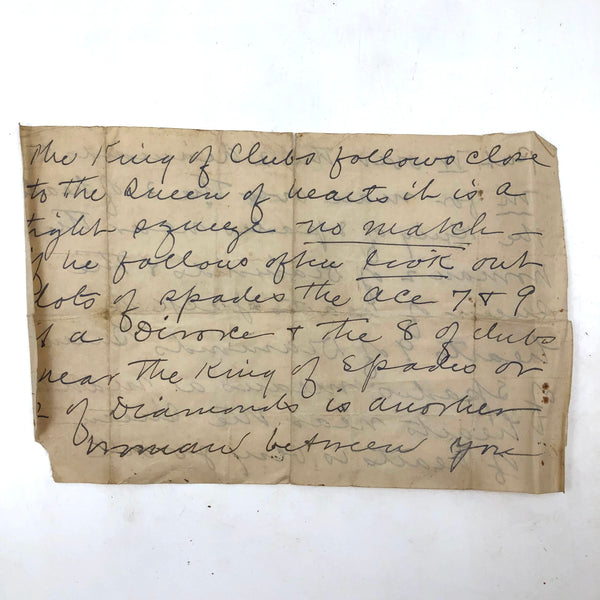 The King of Clubs follows close
to the Queen of hearts it is a
tight squeeze no match –
if he follows often look out
lots of spades the ace 7 & 9
is a Divorce & the 8 of clubs
near the King of Spades or
2 of Diamonds is another
woman between you